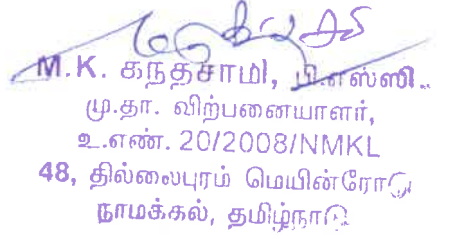 M.K. கந்தசாமி, பி.எஸ்ஸி..
மு.தா. விற்பனையாளர்,
உ.எண். 20/2008/NMKL
48, தில்லைபுரம் மெயின்ரோடு
நாமக்கல், தமிழ்நாடு